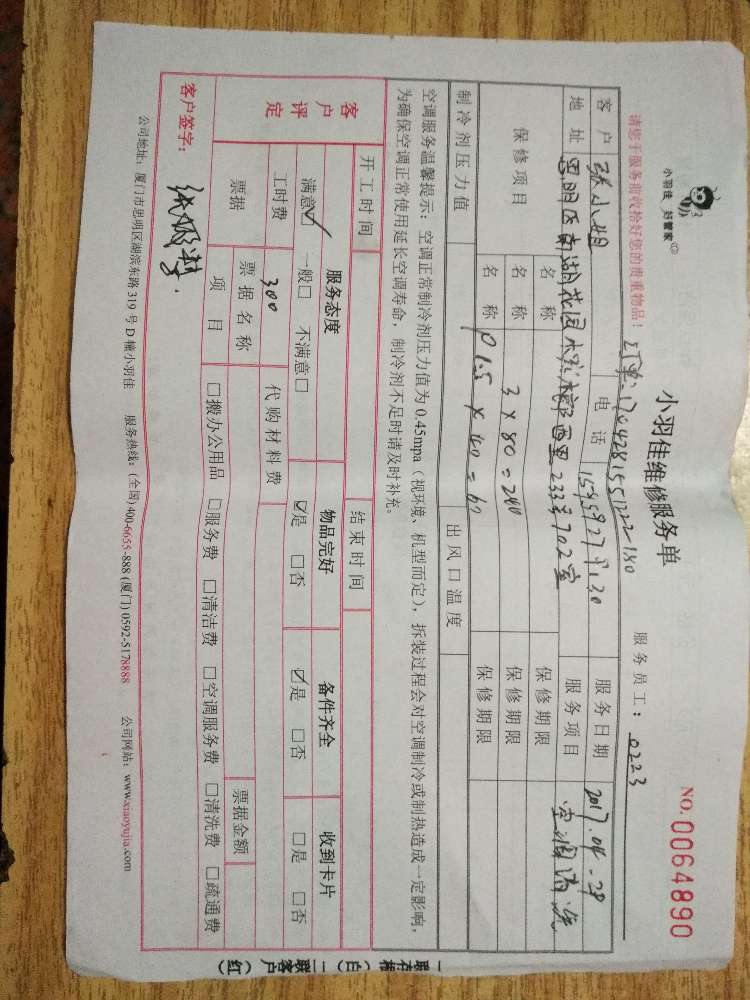 小羽佳 好管家
小羽佳维修服务单
NO.0064890
请您于服务前收拾好您的贵重物品!
订单:170428155122180
服务员工: 0223
客户 张小姐 电话 服务日期 2017.04.28
地址 思明区南湖花园 西里233号702室 服务项目 空调清洗
保修项目 名称 保修期限
名称 3×80=240 保修期限
名称 P1.5×40=60 保修期限
制冷剂压力值 出风口温度
空调服务温馨提示:空调正常制冷剂压力值为0.45mpa(视环境、机型而定),拆装过程会对空调制冷或制热造成一定影响,
为确保空调正常使用延长空调寿命,制冷剂不足时请及时补充。
开工时间 结束时间
客户评定 服务态度 物品完好 备件齐全 收到卡片
满意☑ 一般□ 不满意□ ☑是 □否 ☑是 □否 □是 □否
工时费 300 代购材料费
票据 票据名称 票据金额
项目 □搬办公用品 □服务费 □清洁费 □空调服务费 □清洗费 □疏通费
客户签字:
公司地址:厦门市思明区湖滨东路319号D幢小羽佳 服务热线:(全国)400-6655-888 (厦门) 0592-5178888 公司网站:www.xiaoyujia.com
一联存根(白) 二联客户(红)